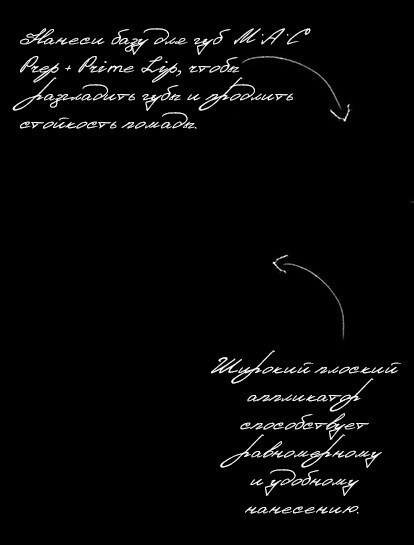 Нанеси базу для губ M·A·C
Prep + Prime Lip, чтобы
разгладить губы и продлить
стойкость помады.
Широкий плоский
аппликатор
способствует
равномерному
и удобному
нанесению.